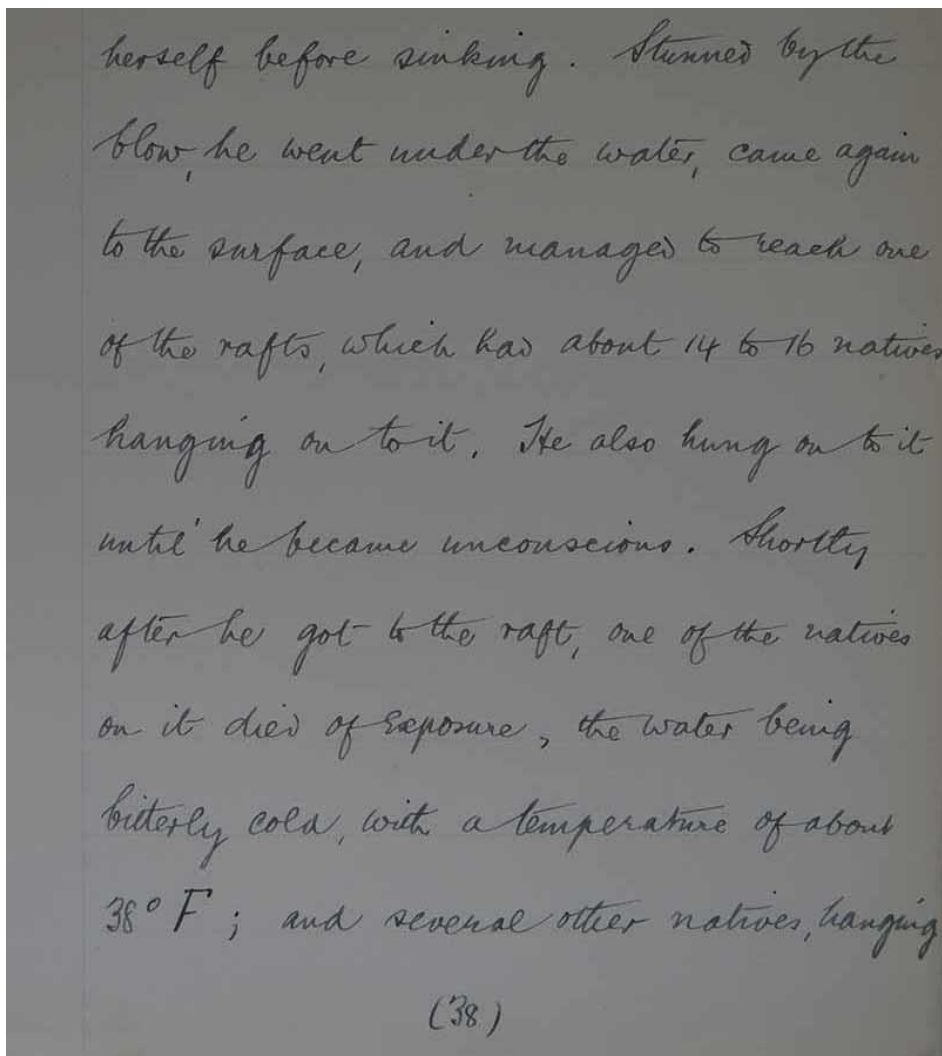 herself before sinking. Stunned by the
blow, he went under the water, came again
to the surface, and managed to reach one
of the rafts, which had about 14 to 16 natives
hanging on to it. He also hung on to it
until he became unconscious. Shortly
after he got to the raft, one of the natives
on it died of exposure, the water being
bitterly cold, with a temperature of about
38° F; and several other natives, hanging
(38)